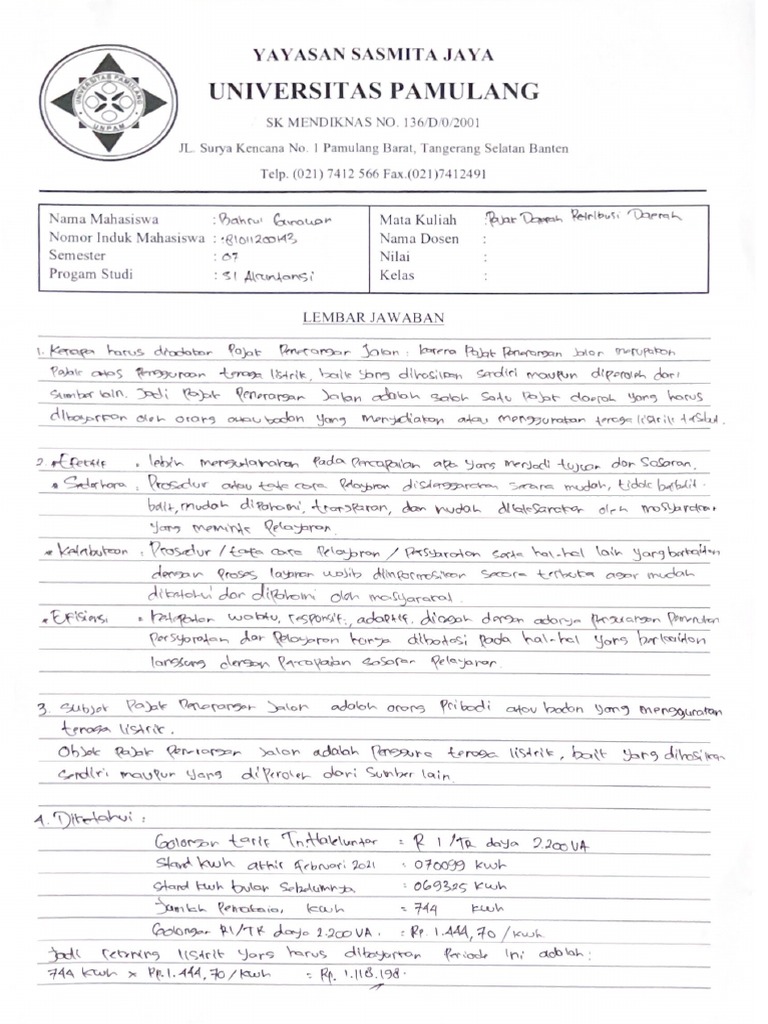 YAYASAN SASMITA JAYA
UNIVERSITAS PAMULANG
SK MENDIKNAS NO. 136/D/0/2001
JL. Surya Kencana No. 1 Pamulang Barat, Tangerang Selatan Banten
Telp. (021) 7412 566 Fax.(021)7412491
UNIVERSITAS PAMULANG
UNPAM
Nama Mahasiswa : Bahrul Gunawan
Nomor Induk Mahasiswa :
Semester : 07
Progam Studi : S1 Akuntansi
Mata Kuliah : Pajak Daerah Retribusi Daerah
Nama Dosen :
Nilai :
Kelas :
LEMBAR JAWABAN
1. Kenapa harus diadakan Pajak Penerangan Jalan : karena Pajak Penerangan Jalan merupakan
Pajak atas Penggunaan tenaga listrik, baik yang dihasilkan sendiri maupun diperoleh dari
Sumber lain. Jadi Pajak Penerangan Jalan adalah salah satu Pajak daerah yang harus
dibayarkan oleh orang atau badan yang menyediakan atau menggunakan tenaga listrik tersebut.
2. • Efektif : lebih mengutamakan Pada Pencapaian apa yang menjadi tujuan dan Sasaran.
• Sederhana : Prosedur atau tata cara Pelayanan diselenggarakan secara mudah, tidak berbelit-
belit, mudah dipahami, transparan, dan mudah dilaksanakan oleh masyarakat
yang meminta Pelayanan.
• Keterbukaan : Prosedur / tata cara Pelayanan / Persyaratan serta hal-hal lain yang berkaitan
dengan Proses layanan wajib diinformasikan secara terbuka agar mudah
diketahui dan dipahami oleh masyarakat.
• Efisiensi : ketepatan waktu, responsif, adaptif. dengan adanya
Persyaratan dan Pelayanan hanya dibatasi pada hal-hal yang berkaitan
langsung dengan Pencapaian sasaran Pelayanan.
3. Subjek Pajak Penerangan Jalan adalah orang Pribadi atau badan yang menggunakan
tenaga listrik.
Objek Pajak Penerangan Jalan adalah Pengguna tenaga listrik, baik yang dihasilkan
sendiri maupun yang diperoleh dari Sumber lain.
4. Diketahui :
Golongan tarif Tn. = R 1 /TR daya 2.200 VA
Stand kwh akhir Februari 2021 : 070099 kwh
Stand kwh bulan Sebelumnya : 069325 kwh
Jumlah Pemakaian kwh = 744 kwh
Golongan R1/TR daya 2.200 VA. : Rp. 1.444,70 / kwh
Jadi rekening listrik yang harus dibayarkan Periode ini adalah:
744 kwh x Rp. 1.444,70 / kwh = Rp. 1.118.198.